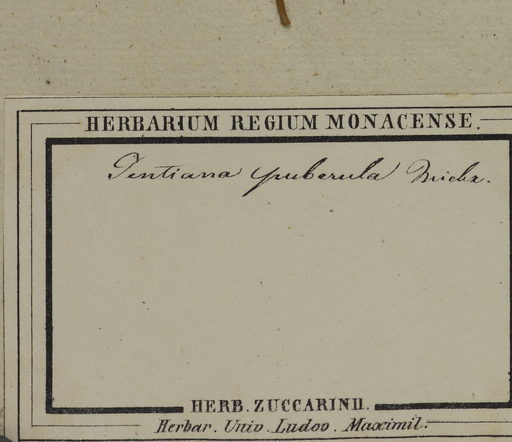 HERBARIUM REGIUM MONACENSE.
Gentiana puberula Michx.
HERB. ZUCCARINII.
Herbar. Univ. Ludov. Maximil.